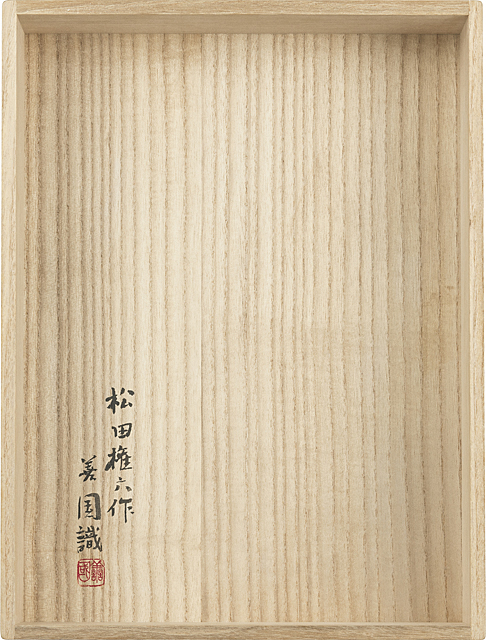 松田権六作
善園識